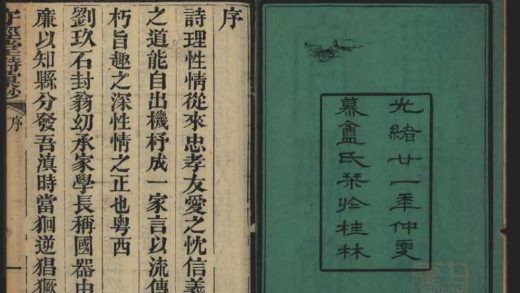 光緒廿一秊仲夏
慕盦氏栞於桂林
序
詩理性情從來忠孝友愛之忱信義
之道能自出機杼成一家言以流傳
朽旨趣之深性情之正也粤西
劉玖石封翁幼承家學長稱國器由
廉以知縣分發吾滇時當徊逆猖獗
經堂詩
序
一